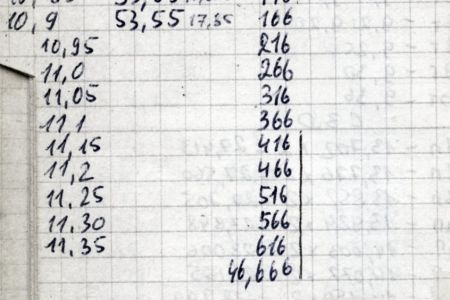 10,9 53,55 17,35 166
10,95 216
11,0 266
11,05 316
11,1 366
11,15 416
11,2 466
11,25 516
11,30 566
11,35 616
46,666